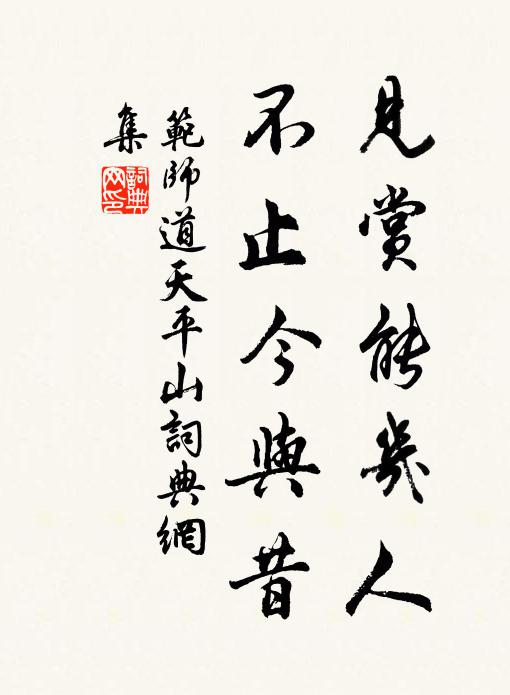 見賞能幾人
不止今與昔
範師道天平山詞典網
集
詞典
网印